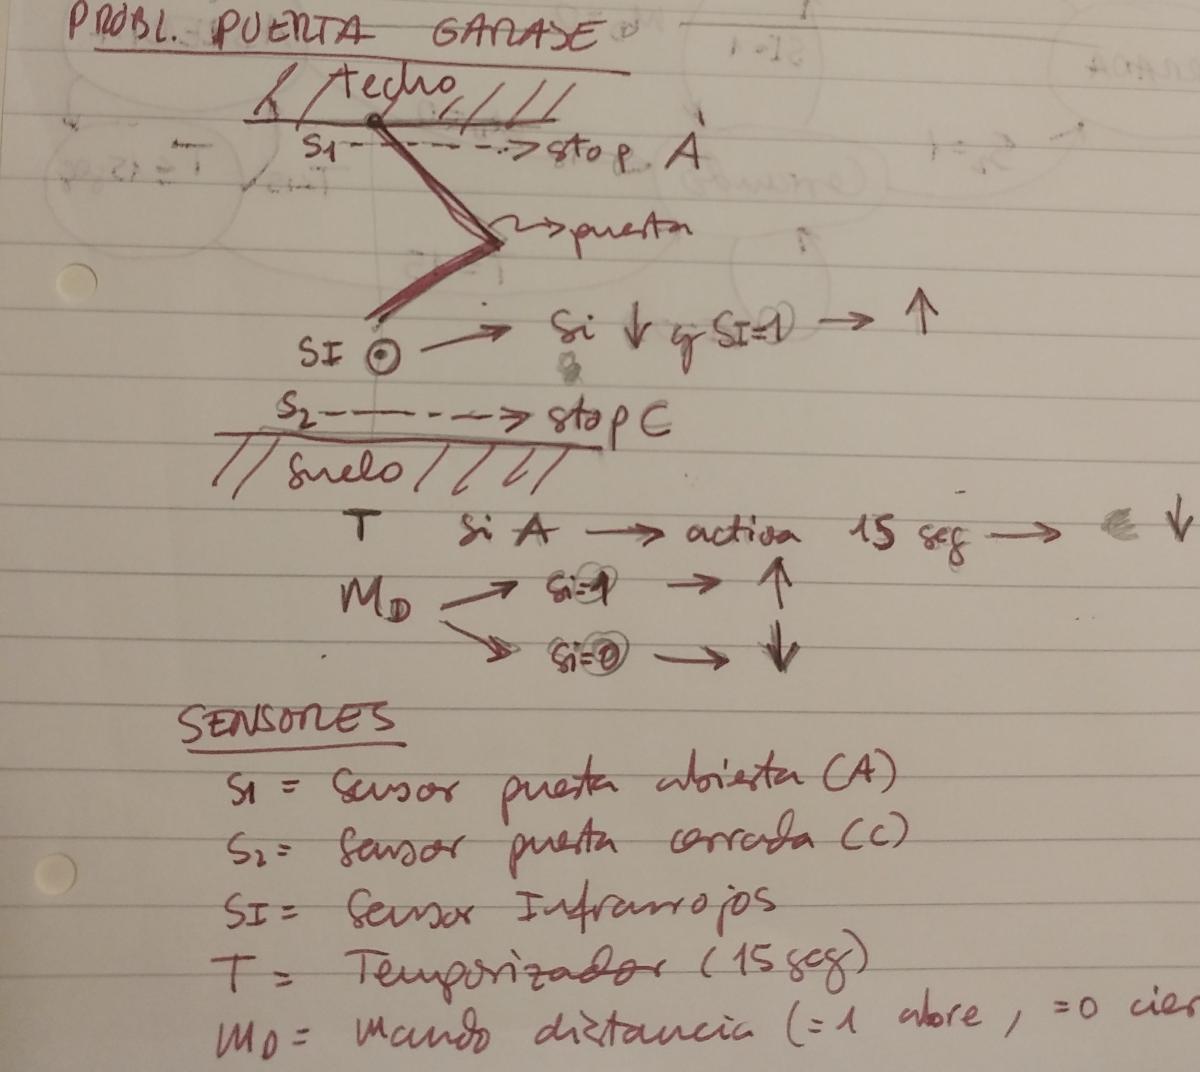 PROBL. PUERTA GARAJE
techo
S1 --> stop A
puerta
SI → Si ↓ y SI=1 → ↑
S2 --> stop C
suelo
T si A → activa 15 seg → ↓
MD → si=1 → ↑
→ si=0 → ↓
SENSORES
S1 = Sensor puerta abierta (A)
S2 = Sensor puerta cerrada (C)
SI = Sensor Infrarrojos
T = Temporizador (15 seg)
MD = Mando distancia (=1 abre, =0 cier